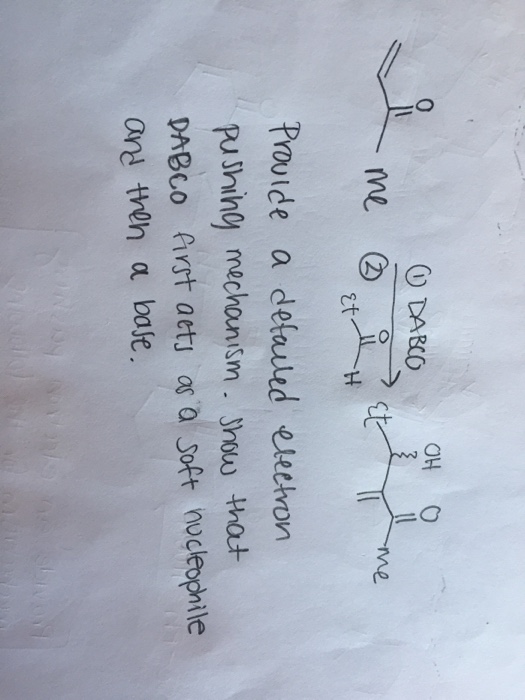 O
Me
① DABCO
② O
Et H
OH O
Et Me
Provide a detailed electron
pushing mechanism. Show that
DABCO first acts as a soft nucleophile
and then a base.